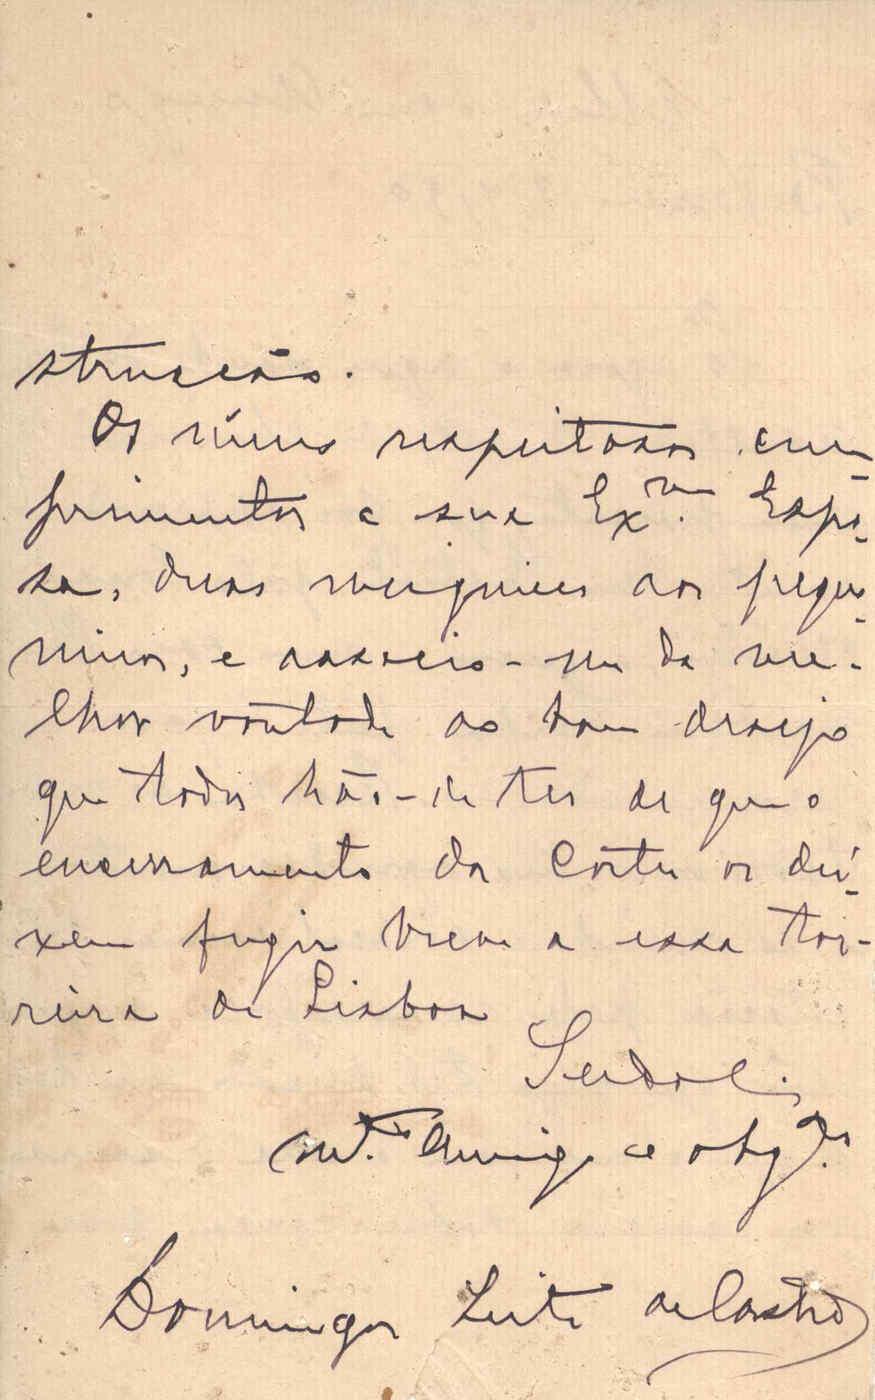 strucção.
Os meus respeitosos cum-
primentos a sua Exma. Espo-
sa, duas meiguices aos peque-
ninos, e associo-me da me-
lhor vontade ao bom desejo
que todos hão-de ter de que o
encerramento das Côrtes os dei-
xem fugir breve a essa tor-
reira de Lisboa
Seu do C.
mto. Amigo e obgdo.
Domingos Leite de Castro